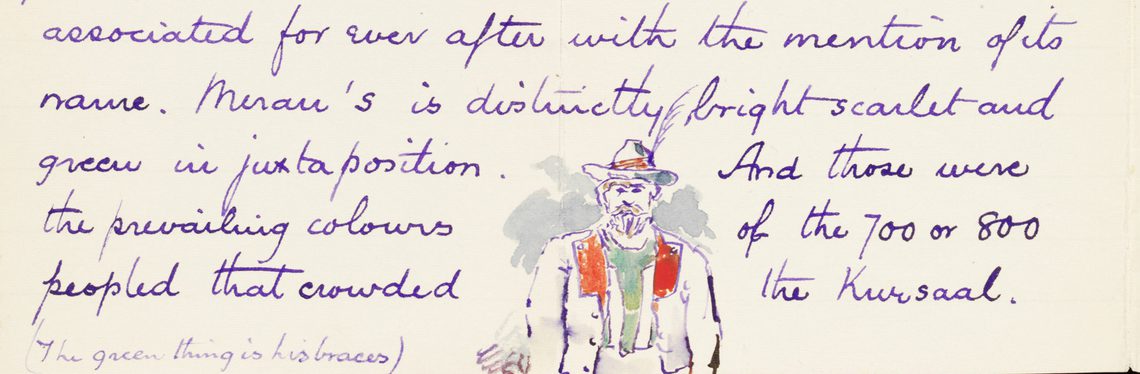 associated for ever after with the mention of its
name. Meran's is distinctly bright scarlet and
green in juxtaposition. And those were
the prevailing colours of the 700 or 800
peopled that crowded the Kursaal.
(The green thing is his braces)